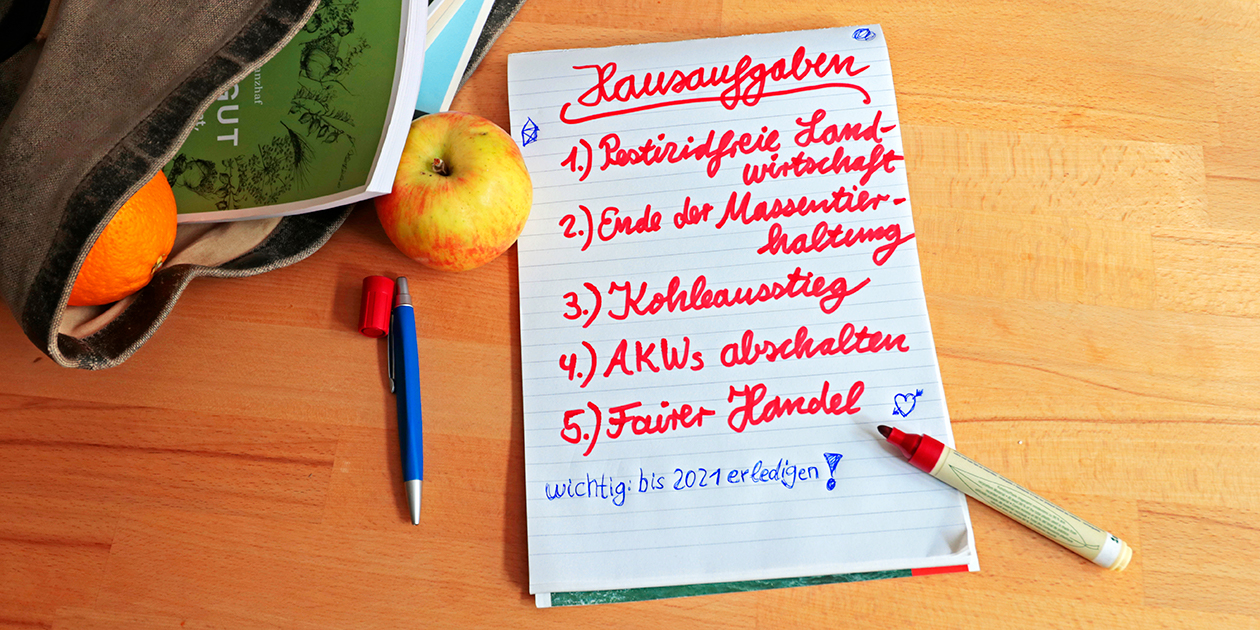 anzhaf
GUT
Hausaufgaben
1.) Pestizidfreie Land-
wirtschaft
2.) Ende der Massentier-
haltung
3.) Kohleausstieg
4.) AKWs abschalten
5.) Fairer Handel
wichtig: bis 2021 erledigen!